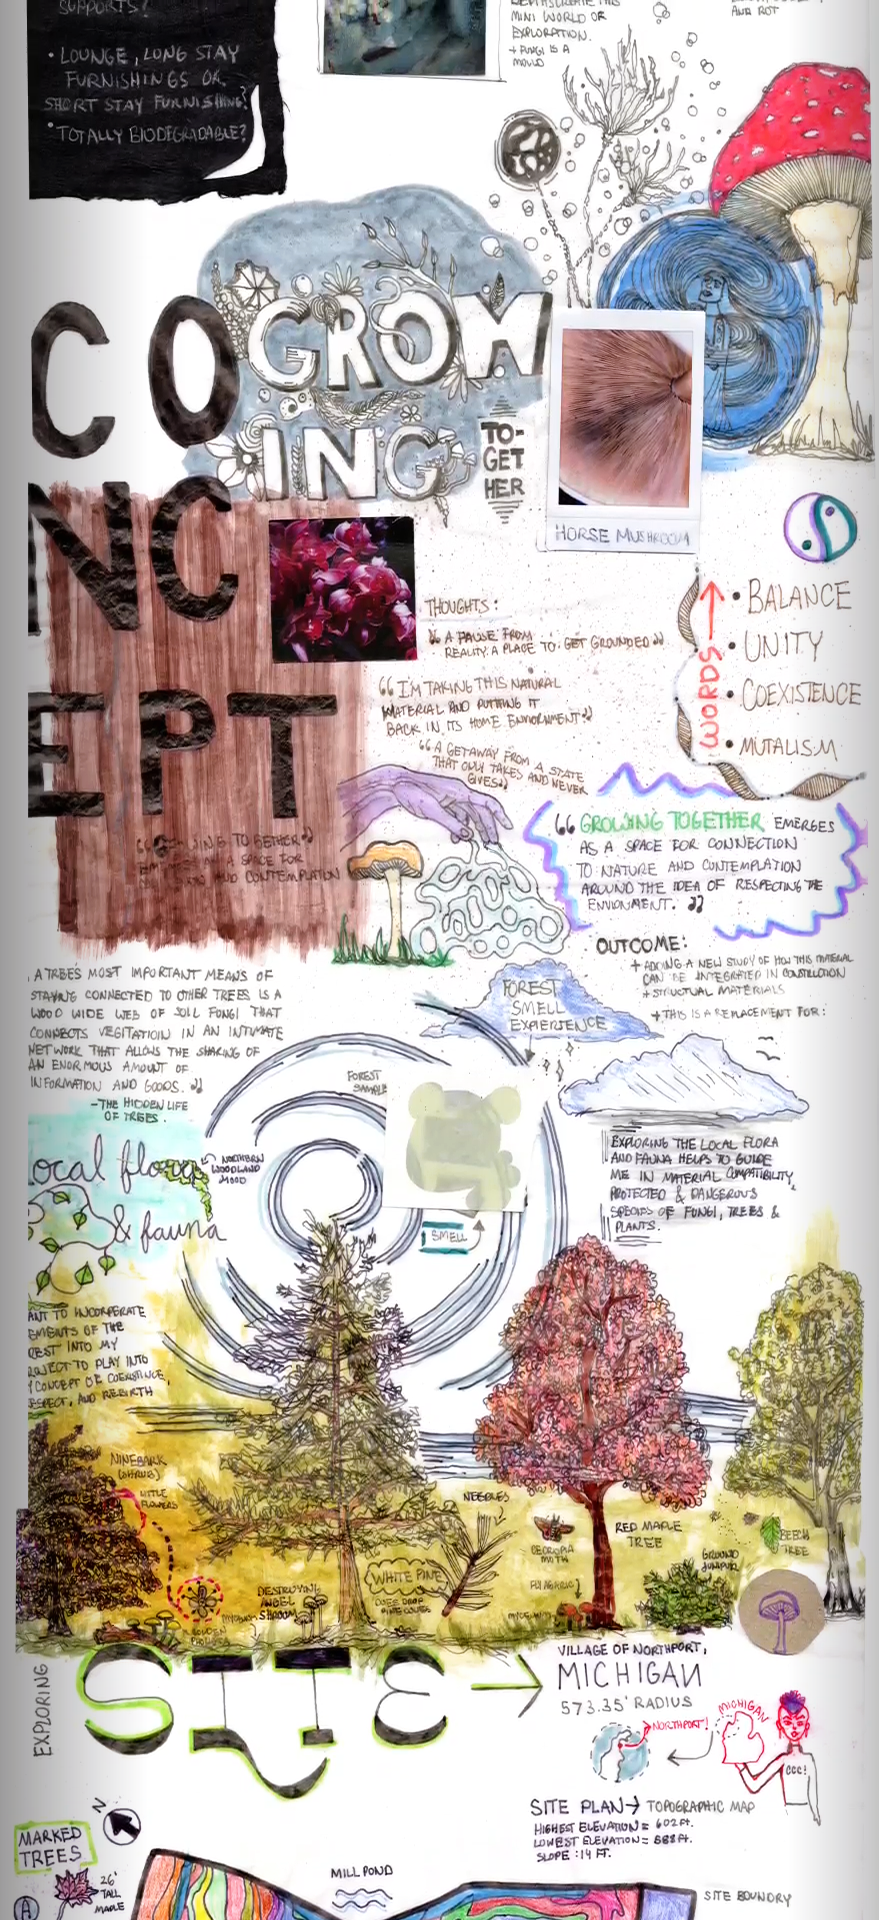 SUPPORTS?
• LOUNGE, LONG STAY
FURNISHINGS OR
SHORT STAY FURNISHING?
• TOTALLY BIODEGRADABLE?
MINI WORLD OF
EXPLORATION.
+ FUNGI IS A
MOLD
AND ROT
CO
NC
EPT
GROW
ING
TO-
GET
HER
HORSE MUSHROOM
THOUGHTS:
“ A PAUSE FROM
REALITY. A PLACE TO GET GROUNDED ”
“ I'M TAKING THIS NATURAL
MATERIAL AND PUTTING IT
BACK IN ITS HOME ENVIORNMENT ”
“ A GETAWAY FROM A STATE
THAT ONLY TAKES AND NEVER
GIVES ”
WORDS
• BALANCE
• UNITY
• COEXISTENCE
• MUTALISM
“ GROWING TOGETHER EMERGES
AS A SPACE FOR CONNECTION
TO NATURE AND CONTEMPLATION
AROUND THE IDEA OF RESPECTING THE
ENVIONMENT. ”
TO GETHER ”
A SPACE FOR
AND CONTEMPLATION
OUTCOME:
+ ADDING A NEW STUDY OF HOW THIS MATERIAL
CAN BE INTEGRATED IN CONSTUCTION
+ STRUCTUAL MATERIALS
+ THIS IS A REPLACEMENT FOR:
A TREE'S MOST IMPORTANT MEANS OF
STAYING CONNECTED TO OTHER TREES IS A
WOOD WIDE WEB OF SOIL FUNGI THAT
CONNECTS VEGITATION IN AN INTIMATE
NETWORK THAT ALLOWS THE SHARING OF
AN ENORMOUS AMOUNT OF
INFORMATION AND GOODS. ”
- THE HIDDEN LIFE
OF TREES.
FOREST
SMELL
EXPERIENCE
FOREST
SAMPLE
SMELL
EXPLORING THE LOCAL FLORA
AND FAUNA HELPS TO GUIDE
ME IN MATERIAL COMPATIBILITY,
PROTECTED & DANGEROUS
SPECIES OF FUNGI, TREES &
PLANTS.
ocal flora
& fauna
NORTHERN
WOODLAND
MOOD
ANT TO INCORPERATE
EMENTS OF THE
REST INTO MY
ROJECT TO PLAY INTO
Y CONCEPT OF COEXISTINCE,
ESPECT, AND REBIRTH
NINEBARK
(SHRUB)
LITTLE
FLOWERS
GOLDEN
DESTROYING
ANGEL
SHROOM
WHITE PINE
DOES DROP
PINE CONES
NEEDLES
CECROPIA
MOTH
FLY AGARIC
RED MAPLE
TREE
GROUND
JUNIPER
BEECH
TREE
EXPLORING
SITE
VILLAGE OF NORTHPORT,
MICHIGAN
573.35' RADIUS
NORTHPORT!
MICHIGAN
CCC!
SITE PLAN → TOPOGRAPHIC MAP
HIGHEST ELEVATION = 602 FT.
LOWEST ELEVATION = 588 FT.
SLOPE: 14 FT.
N
MARKED
TREES
26'
TALL
MAPLE
A
MILL POND
SITE BOUNDRY